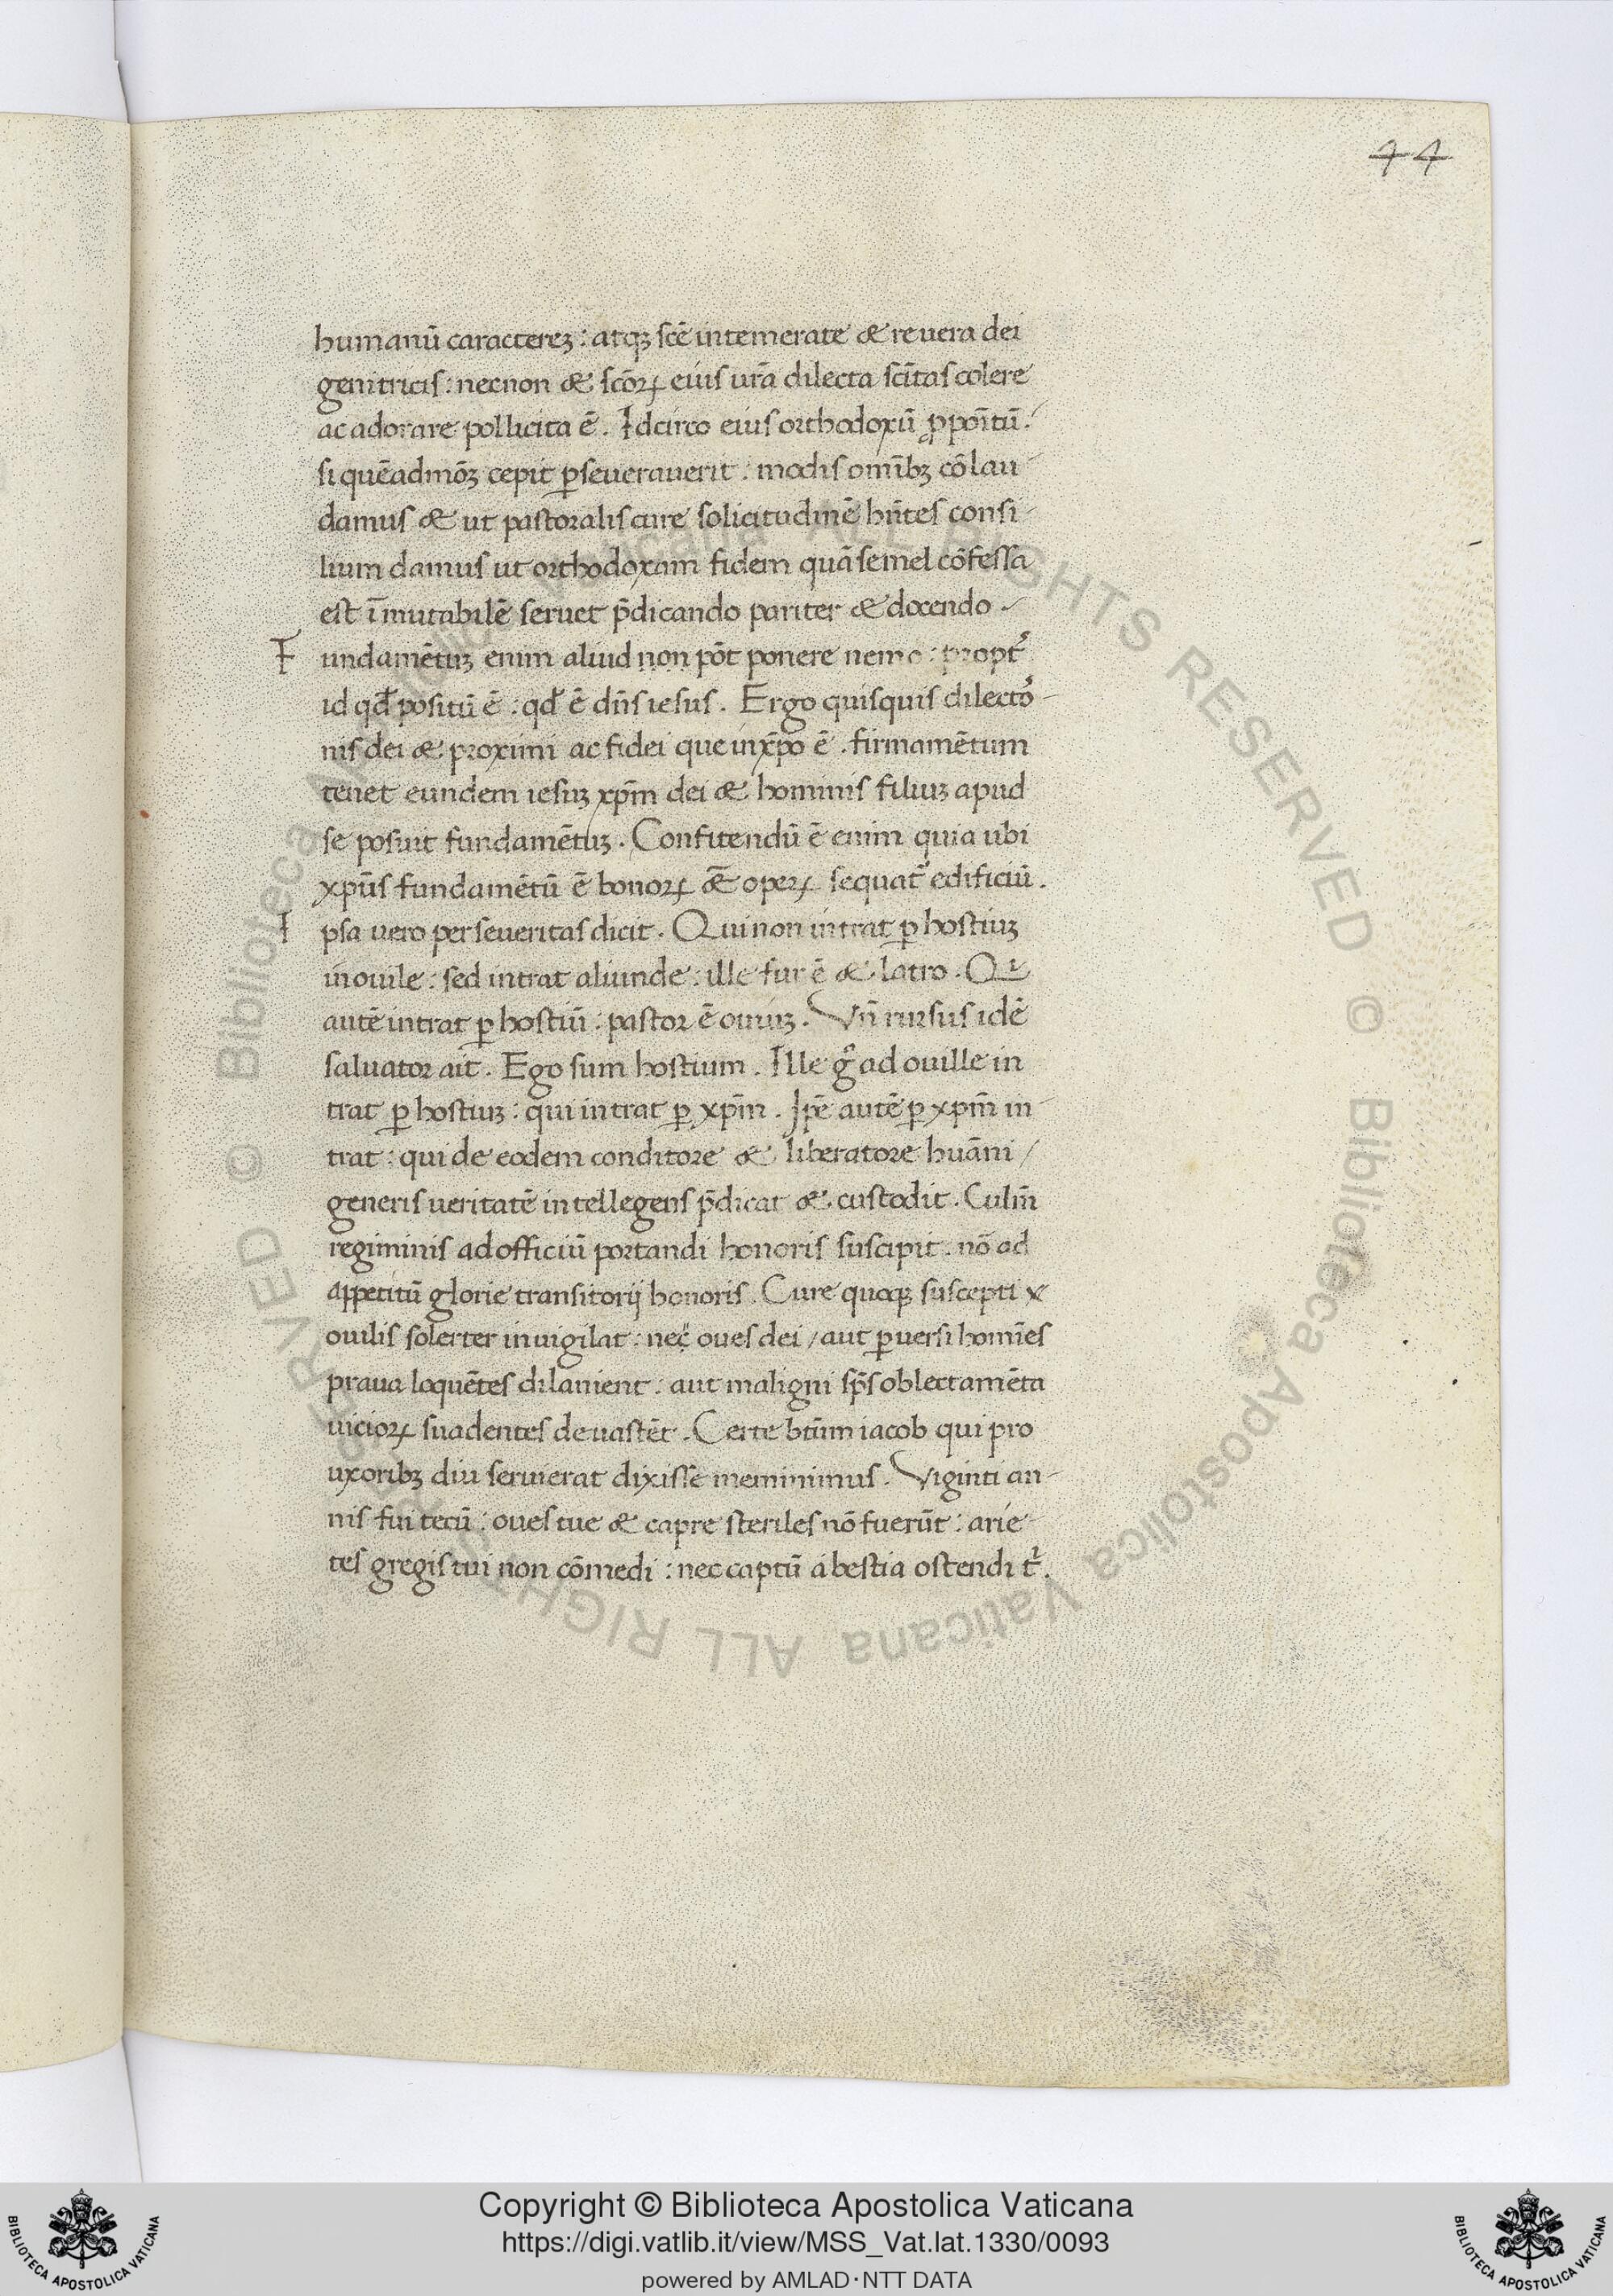 44
humanū caractereꝫ : atqꝫ scē intemerate & reuera dei
genitricis : necnon & scōꝝ eius ura̅ dilecta scītas colere
ac adorare pollicita ē . Idcirco eius orthodoxū ꝓpoītū :
si quēadmōꝫ cepit ꝑseuerauerit : modis omībꝫ cōlau-
damus & ut pastoralis cure solicitudinē hn̄tes consi-
lium damus ut orthodoxam fidem quā semel cōfessa
est īmutabilē seruet p̄dicando pariter & docendo .
Fundamētuꝫ enim aliud non pōt ponere nemo : propt̓
id qđ positū ē : qđ ē dn̄s iesus . Ergo quisquis dilectō-
nis dei & proximi ac fidei que in xp̄o ē . firmamētum
tenet eundem iesuꝫ xp̄m dei & hominis filiuꝫ apud
se posuit fundamētuꝫ . Confitendū ē enim quia ubi
xpūs fundamētū ē bonoꝝ &̄ opeꝝ sequat̓ edificiū .
Ipsa uero perseueritas dicit . Qui non intrat ꝑ hostiuꝫ
in ouile : sed intrat aliunde : ille fur ē & latro . Qi
autē intrat ꝑ hostiū : pastor ē ouiuꝫ . Vn̄ rursus idē
saluator ait . Ego sum hostium . Ille g̊ ad ouille in
trat ꝑ hostiuꝫ : qui intrat ꝑ xp̄m . Ip̄e autē ꝑ xp̄m in-
trat : qui de eodem conditore & liberatore huāni /
generis ueritatē intellegens p̄dicat & custodit . Culm̄
regiminis ad officiū portandi honoris suscipit . nō ad
appetitū glorie transitorij honoris . Cure quoqꝫ suscepti x
ouilis solerter inuigilat : nec oues dei / aut ꝑuersi homīes
praua loquētes dilanient : aut maligni sp̄s oblectamēta
uicioꝝ suadentes deuastēt . Certe btūm iacob qui pro
uxoribꝫ diu seruierat dixisse meminimus . Viginti an-
nis fui tecū : oues tue & capre steriles nō fuerūt : arie-
tes gregis tui non cōmedi : nec captū a bestia ostendi t̓ .
© Biblioteca Apostolica Vaticana ALL RIGHTS RESERVED © Biblioteca Apostolica Vaticana ALL RIGHTS RESERVED
Copyright © Biblioteca Apostolica Vaticana
https://digi.vatlib.it/view/MSS_Vat.lat.1330/0093
powered by AMLAD·NTT DATA
BIBLIOTECA APOSTOLICA VATICANA
BIBLIOTECA APOSTOLICA VATICANA